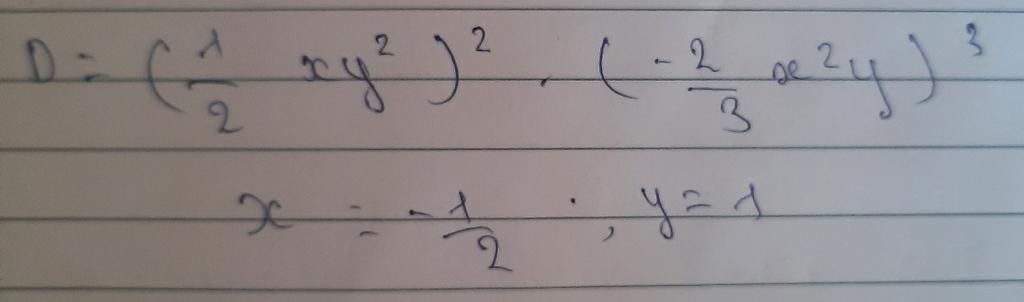 D = (1/2 xy²)² . (-2/3 x²y)³
x = -1/2 ; y = 1